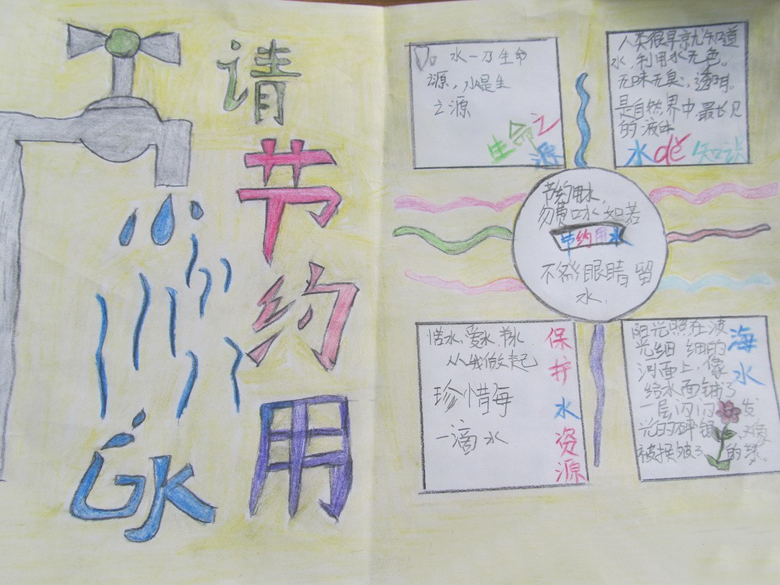 请
节
约
用
水
水一万生命
源，水是生
之源
生命之
源
人类很早就知道
水，利用水无色。
无味无臭，透明。
是自然界中最长见
的液体
水dě知识
节约用水，
勿费口水，如若
节约用水
不然，眼睛留
水．
惜水、爱水、节水
从我做起
珍惜每
一滴水
保护水资源
阳光照在波
光细细的
河面上，像
给水面铺了
一层闪闪发
光的碎银，
被揉皱了的
海水